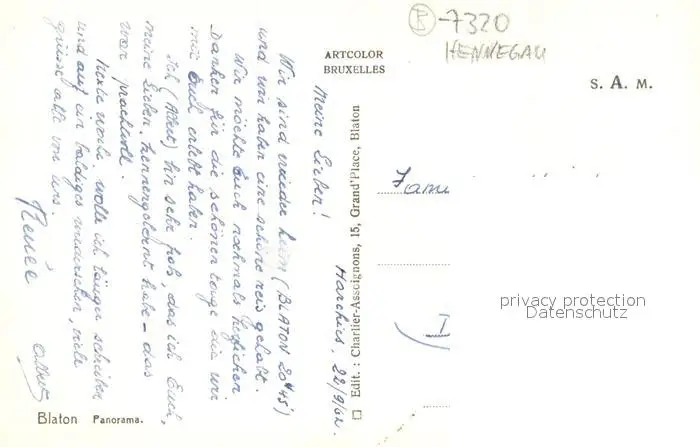 B-7320
HENNEGAU
ARTCOLOR
BRUXELLES
S. A. M.
Harchies, 22/9/62.
Meine Lieben!
Wir sind wieder heim (BLATON 20 H 45)
und wir haben eine schöne reis gehabt.
Wir möchte Euch nochmals herslicher
Danken für die schönen tage die wir
mit Euch erlebt haben.
Ich (Albert) bin sehr froh, das ich Euch,
meine Lieben, kennengelernt habe - das
war prachtvoll.
Nexte woche, wolle ich länger schreiben
und auf ein baldiges wiedersehen, viele
grüsse alle von uns.
Renée
Albert
Edit. : Charlier-Assoignons, 15, Grand'Place, Blaton
Fam
privacy protection
Datenschutz
Blaton Panorama.